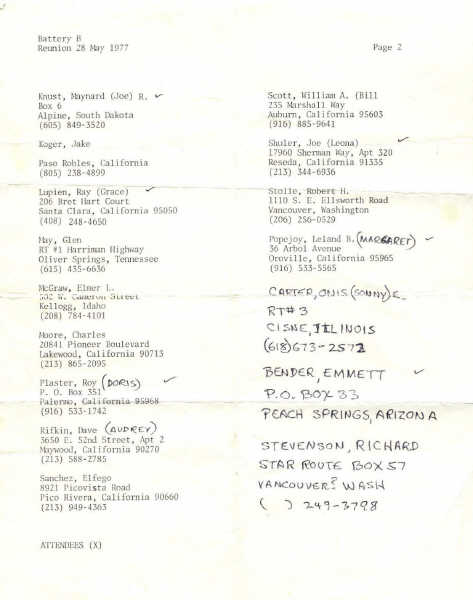 Battery B
Reunion 28 May 1977
Page 2
Knust, Maynard (Joe) R. ✓
Box 6
Alpine, South Dakota
(605) 849-3520
Koger, Jake
Paso Robles, California
(805) 238-4899
Lupien, Ray (Grace) ✓
206 Bret Hart Court
Santa Clara, California 95050
(408) 248-4650
May, Glen
RT #1 Harriman Highway
Oliver Springs, Tennessee
(615) 435-6636
McGraw, Elmer L.
502 W. Cameron Street
Kellogg, Idaho
(208) 784-4101
Moore, Charles
20841 Pioneer Boulevard
Lakewood, California 90713
(213) 865-2095
Plaster, Roy (DORIS) ✓
P. O. Box 351
Palermo, California 95968
(916) 533-1742
Rifkin, Dave (AUDREY)
3650 E. 52nd Street, Apt 2
Maywood, California 90270
(213) 588-2785
Sanchez, Elfego
8921 Picovista Road
Pico Rivera, California 90660
(213) 949-4363
ATTENDEES (X)
Scott, William A. (Bill
235 Marshall Way
Auburn, California 95603
(916) 885-9641
Shuler, Joe (Leona) ✓
17960 Sherman Way, Apt 320
Reseda, California 91335
(213) 344-6936
Stolle, Robert H.
1110 S. E. Ellsworth Road
Vancouver, Washington
(206) 256-0529
Popejoy, Leland B. (MARGARET) ✓
36 Arbol Avenue
Oroville, California 95965
(916) 533-5565
CARTER, ONIS (SONNY) E.
RT#3
CISNE, ILLINOIS
(618) 673-2572
BENDER, EMMETT ✓
P.O. BOX 33
PEACH SPRINGS, ARIZONA
STEVENSON, RICHARD
STAR ROUTE BOX 57
VANCOUVER? WASH
( ) 249-3798